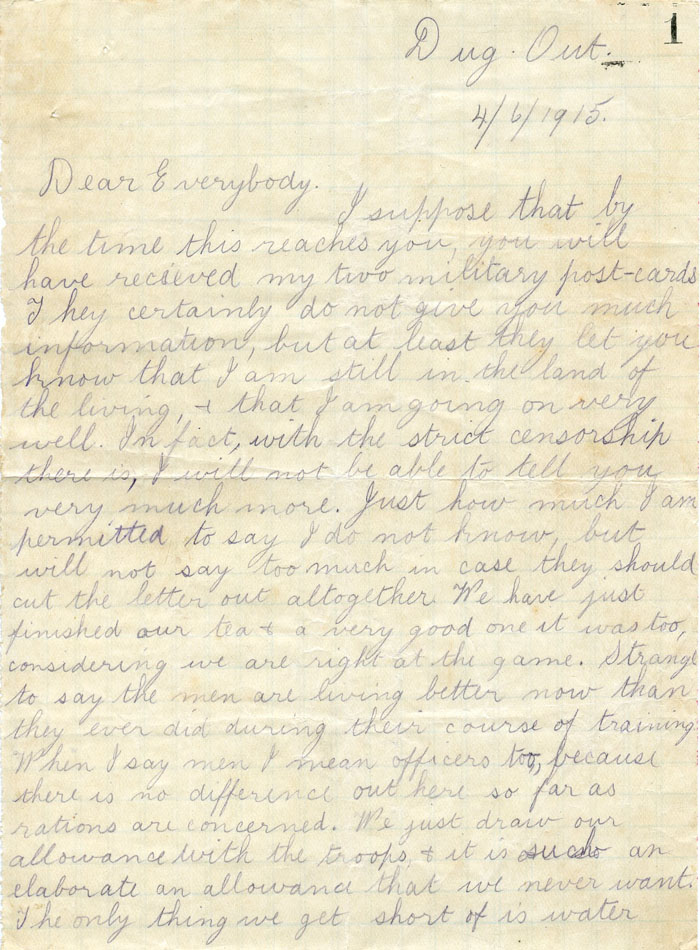 1
Dug-Out.
4/6/1915.
Dear Everybody.
I suppose that by
the time this reaches you, you will
have recieved my two military post-cards
They certainly do not give you much
information, but at least they let you
know that I am still in the land of
the living, & that I am going on very
well. In fact, with the strict censorship
there is, I will not be able to tell you
very much more. Just how much I am
permitted to say I do not know, but
will not say too much in case they should
cut the letter out altogether We have just
finished our tea & a very good one it was too,
considering we are right at the game. Strange
to say the men are living better now than
they ever did during their course of training.
When I say men I mean officers too, because
there is no difference out here so far as
rations are concerned. We just draw our
allowance with the troops, & it is such an
elaborate an allowance that we never want.
The only thing we get short of is water